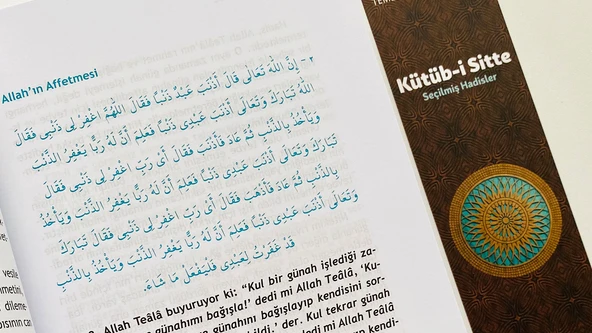 Allah'ın Affetmesi
٢ - إِنَّ اللهَ تَعَالَى قَالَ أَذْنَبَ عَبْدٌ ذَنْبًا فَقَالَ اللَّهُمَّ اغْفِرْ لِى ذَنْبِى فَقَالَ
اللهُ تَبَارَكَ وَتَعَالَى أَذْنَبَ عَبْدِى ذَنْبًا فَعَلِمَ أَنَّ لَهُ رَبًّا يَغْفِرُ الذَّنْبَ
وَيَأْخُذُ بِالذَّنْبِ ثُمَّ عَادَ فَأَذْنَبَ فَقَالَ أَىْ رَبِّ اغْفِرْ لِى ذَنْبِى فَقَالَ
تَبَارَكَ وَتَعَالَى أَذْنَبَ عَبْدِى ذَنْبًا فَعَلِمَ أَنَّ لَهُ رَبًّا يَغْفِرُ الذَّنْبَ وَيَأْخُذُ
بِالذَّنْبِ ثُمَّ عَادَ فَأَذْنَبَ فَقَالَ أَىْ رَبِّ اغْفِرْ لِى ذَنْبِى فَقَالَ تَبَارَكَ
وَتَعَالَى أَذْنَبَ عَبْدِى ذَنْبًا فَعَلِمَ أَنَّ لَهُ رَبًّا يَغْفِرُ الذَّنْبَ وَيَأْخُذُ بِالذَّنْبِ
قَدْ غَفَرْتُ لِعَبْدِى فَلْيَفْعَلْ مَا شَاءَ.
Allah Teâlâ buyuruyor ki: “Kul bir günah işlediği za-
günahımı bağışla!’ dedi mi Allah Teâlâ, ‘Ku-
günahını bağışlayıp kendisini sor-
der. Kul tekrar günah
dedi mi Allah Teâlâ
kendi-
vesile
dileme
Kütüb-i Sitte
Seçilmiş Hadisler